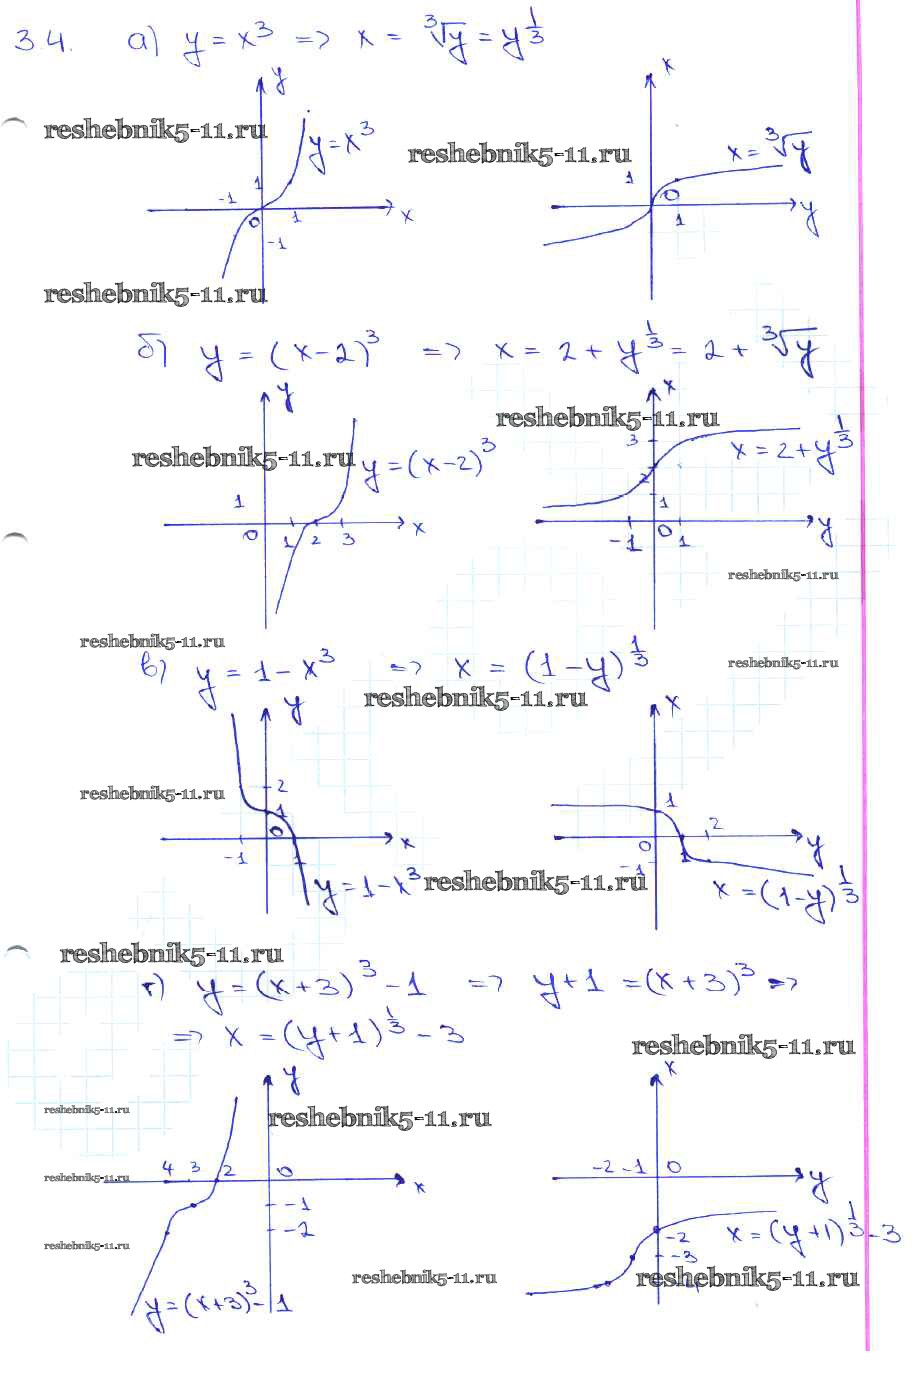 3.4. а) y = x³ => x = ∛y = y^(1/3)
y
x
reshebnik5-11.ru
y = x³
reshebnik5-11.ru
x = ∛y
-1 1 0 1 -1 x
1 0 1 y
reshebnik5-11.ru
б) y = (x-2)³ => x = 2 + y^(1/3) = 2 + ∛y
y
x
reshebnik5-11.ru
reshebnik5-11.ru
y = (x-2)³
3
x = 2 + y^(1/3)
2
1
1
0 1 2 3 x
-1 0 1 y
reshebnik5-11.ru
reshebnik5-11.ru
reshebnik5-11.ru
в) y = 1 - x³ => x = (1-y)^(1/3)
reshebnik5-11.ru
y
x
reshebnik5-11.ru
2
1
0
-1 1 x
1
2
0 1 y
-1
y = 1-x³
reshebnik5-11.ru
x = (1-y)^(1/3)
reshebnik5-11.ru
г) y = (x+3)³ - 1 => y+1 = (x+3)³ =>
=> x = (y+1)^(1/3) - 3
reshebnik5-11.ru
y
x
reshebnik5-11.ru
reshebnik5-11.ru
4 3 2 0
-2 -1 0
reshebnik5-11.ru
x
y
-1
-2
x = (y+1)^(1/3) - 3
-2
-3
reshebnik5-11.ru
reshebnik5-11.ru
reshebnik5-11.ru
y = (x+3)³ - 1